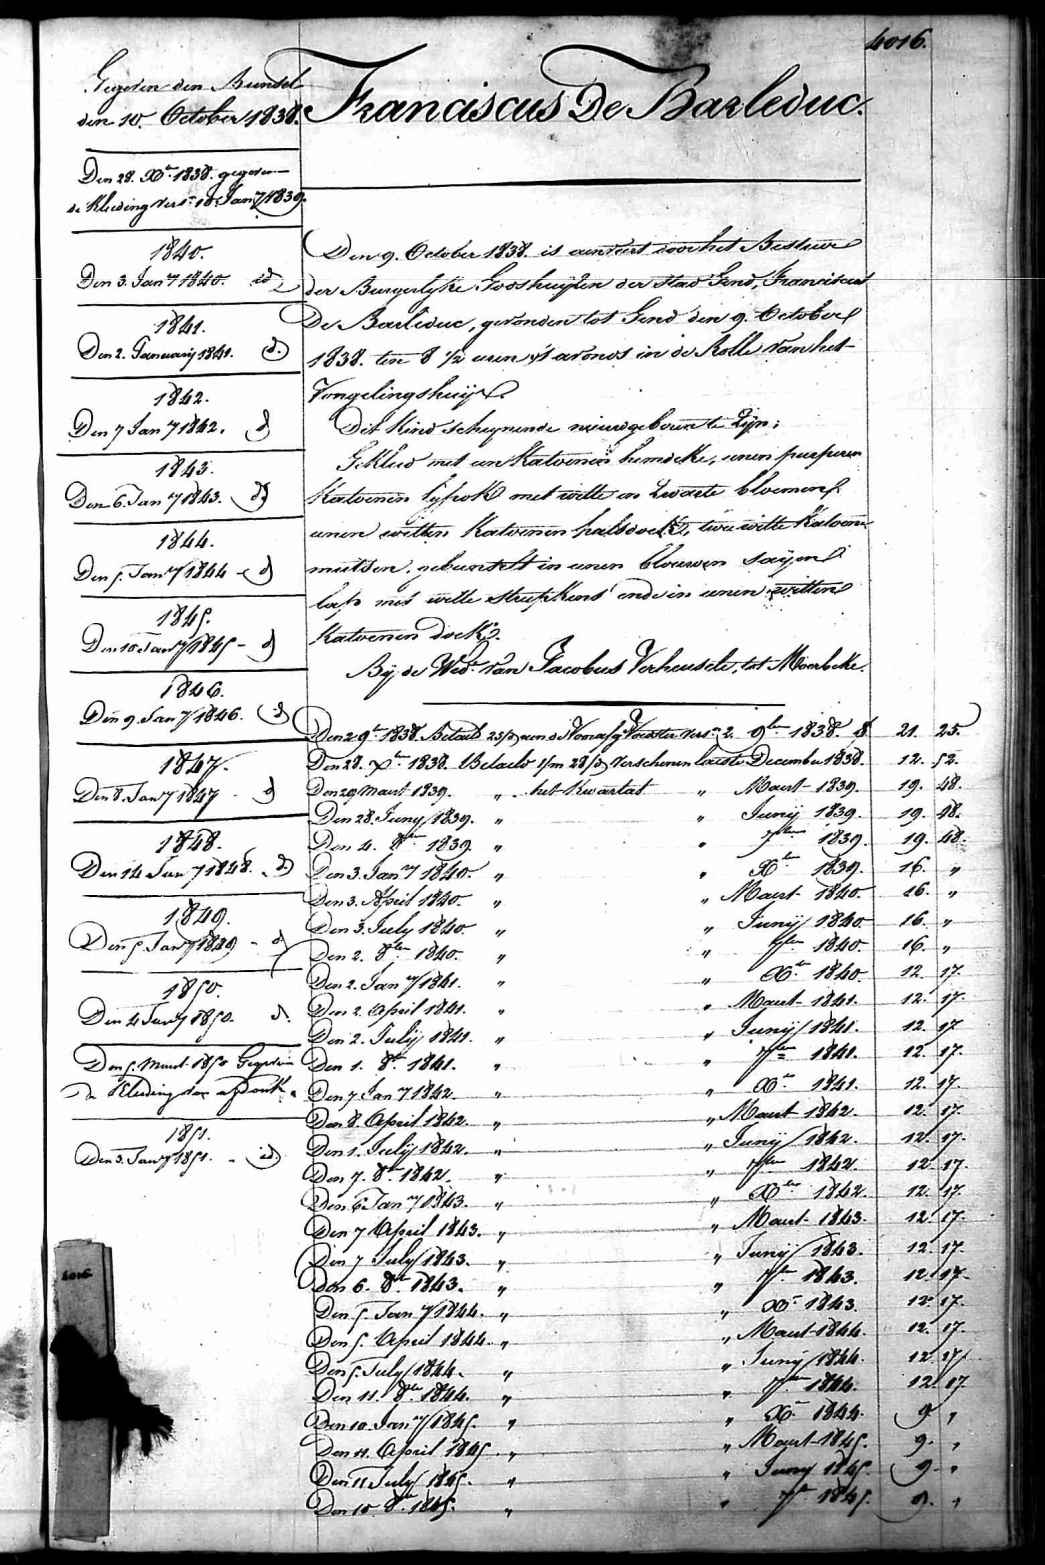 4016.
Franciscus De Barleduc.
Gegeven den Bundel
den 10. October 1838.
Den 28. Xber 1838. gegeven
de Kleeding vers. 10 Jany 1839.
1840.
Den 3. Jany 1840. id
1841.
Den 2. January 1841. d.
1842.
Den 7 Jany 1842. d
1843.
Den 6. Jany 1843. d
1844.
Den 5. Jany 1844 - d
1845.
Den 10 Jany 1845 - d
1846.
Den 9. Jany 1846. d
1847.
Den 8. Jany 1847 - d
1848.
Den 14 Jany 1848. d
1849.
Den 5. Jany 1849 - d
1850.
Den 4 Jany 1850. d.
Den 5. Maert 1850 Gegeven
de Kleeding van
1851.
Den 3. Jany 1851. - id
4016
Den 9. October 1838. is aenveert door het Bestuer
der Burgerlyke Godshuyzen der stad Gend, Franciscus
De Barleduc, gevonden tot Gend den 9. October
1838. ten 8 1/2 uren 's avonds in de Rolle van het
Vongelingshuys.
Dit Kind schynende nieuwgeboren te Zyn;
Gekleed met een Katoenen hemdeke, eenen purperen
Katoenen lyfrok met witte en Zwarte bloemen,
eenen witten Katoenen halsdoek, twee witte Katoene
mutsen, gebundelt in eenen blauwen sayen
lap met witte streepkens ende in eenen witten
Katoenen doek.
Bij de Wed. van Jacobus Verheusele, tot Moerbeke.
Den 2 9ber 1838. Betaelt 23/d aen de Voorster vers. 2. 9ber 1838 21. 25.
Den 28. Xber 1838. Betaeld 28/d verschenen laeste December 1838. 12. 52.
Den 29 Maert 1839. " het Kwartael " Maert 1839. 19. 48.
Den 28. Juny 1839. " " Junij 1839. 19. 48.
Den 4. 8ber 1839. " " 7ber 1839. 19. 48.
Den 3. Jany 1840. " " Xber 1839. 16. "
Den 3. April 1840. " " Maert 1840. 16. "
Den 3. July 1840. " " Junij 1840. 16. "
Den 2. 8ber 1840. " " 7ber 1840. 16. "
Den 2. Jany 1841. " " Xber 1840. 12. 17.
Den 2. April 1841. " " Maert 1841. 12. 17.
Den 2. Julij 1841. " " Junij 1841. 12. 17.
Den 1. 8ber 1841. " " 7ber 1841. 12. 17.
Den 7 Jany 1842. " " Xber 1841. 12. 17.
Den 8. April 1842. " " Maert 1842. 12. 17.
Den 1. Julij 1842. " " Junij 1842. 12. 17.
Den 7. 8ber 1842. " " 7ber 1842. 12. 17.
Den 6 Jany 1843. " " Xber 1842. 12. 17.
Den 7 April 1843. " " Maert 1843. 12. 17.
Den 7 July 1843. " " Junij 1843. 12. 17.
Den 6. 8ber 1843. " " 7ber 1843. 12. 17.
Den 5. Jany 1844. " " Xber 1843. 12. 17.
Den 5. April 1844. " " Maert 1844. 12. 17.
Den 5. July 1844. " " Junij 1844. 12. 17
Den 11. 8ber 1844. " " 7ber 1844. 12. 17
Den 10. Jany 1845. " " Xber 1844. 9. "
Den 11. April 1845 " " Maert 1845. 9. "
Den 11 July 1845. " " Juny 1845. 9. "
Den 10. 8ber 1845. " " 7ber 1845. 9. "